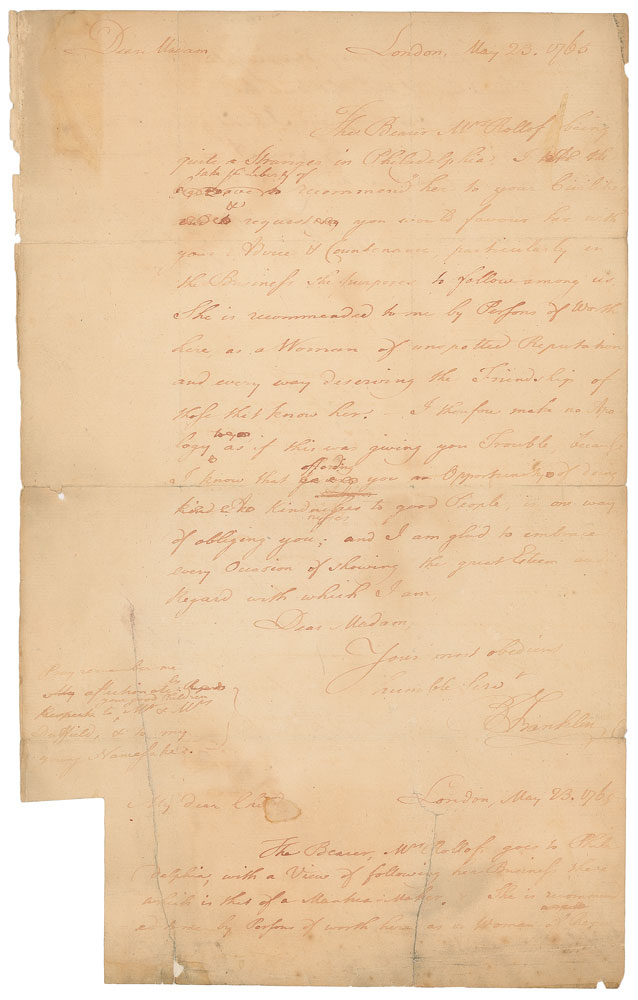 Dear Madam London, May 23. 1765
The Bearer Mrs Rollof being
quite a Stranger in Philadelphia, I the
take the Liberty of
to recommend her to your Civilities
and to request you would favour her with
your Advice & Countenance, particularly in
the Business she purposes to follow among us.
She is recommended to me by Persons of Worth
here as a Woman of unspotted Reputation
and every way deserving the Friendship of
those that know her. — I therefore make no Apo
logy as if this was giving you Trouble, because
affording
I know that you an Opportunity of doing
kind kindnesses to good People, is one way
of obliging you; and I am glad to embrace
every Occasion of showing the great Esteem and
Regard with which I am,
Dear Madam,
Your most obedient
humble Servt
B Franklin
Pray remember me
My affectionate
your good Children
Respects to, Mr & Mrs
Duffield, & to my
young Namesake.
My dear London, May 23. 1765
The Bearer, Mrs Rollof goes to Phila
delphia, with a View of following her Business there
which is that of a Mantua Maker. She is recommend
ed to me by Persons of worth here as a Woman of